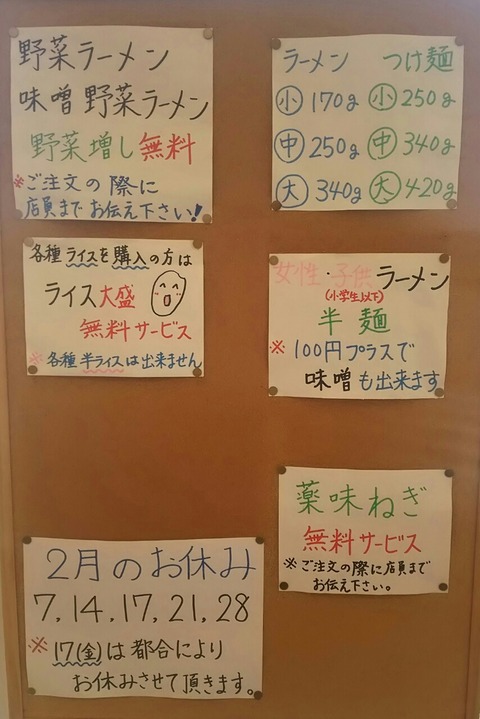 野菜ラーメン
味噌野菜ラーメン
野菜増し無料
※ご注文の際に
店員までお伝え下さい!
ラーメン つけ麺
小 170g 小 250g
中 250g 中 340g
大 340g 大 420g
各種ライスを購入の方は
ライス大盛
無料サービス
※各種半ライスは出来ません
女性・子供ラーメン
(小学生以下)
半麺
※100円プラスで
味噌も出来ます
薬味ねぎ
無料サービス
※ご注文の際に店員まで
お伝え下さい。
2月のお休み
7,14,17,21,28
※17(金)は都合により
お休みさせて頂きます。